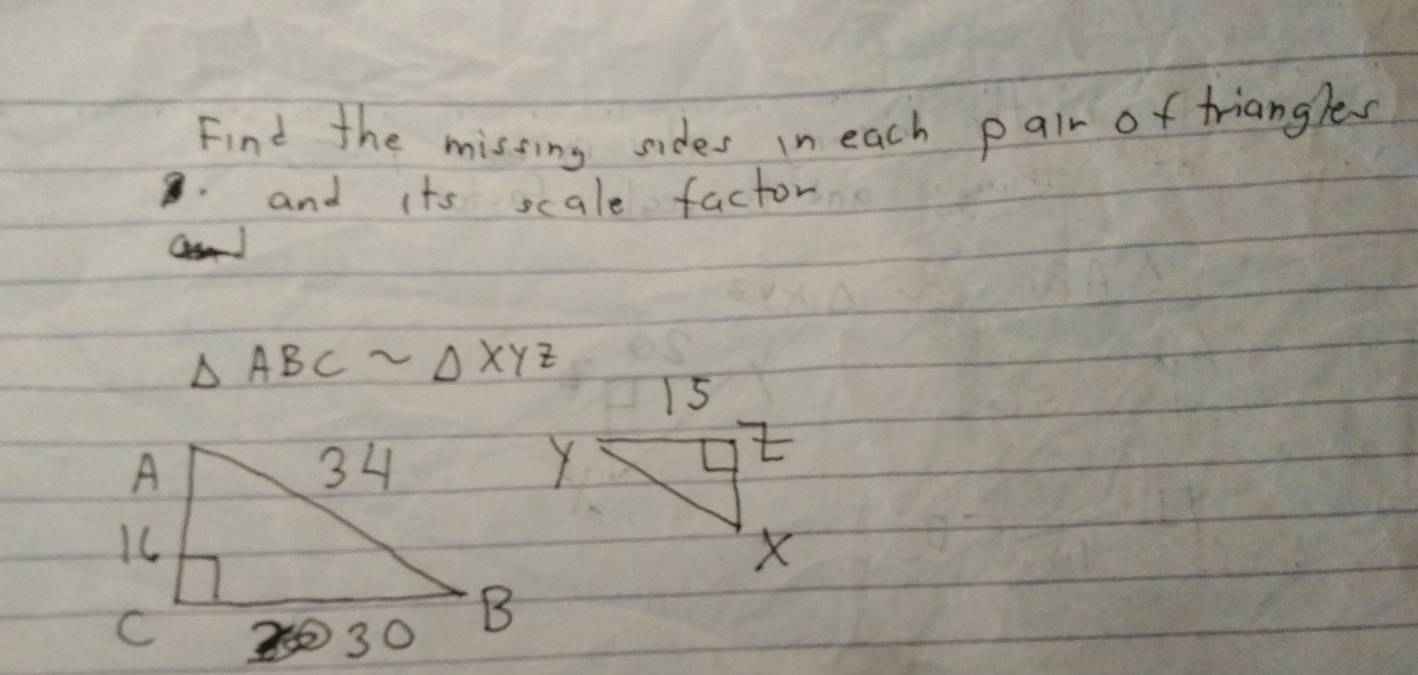 Find the missing sides in each pair of triangles
and its scale factor
Δ ABC ~ Δ XYZ
15
A 34 Y Z
16 X
C 30 B